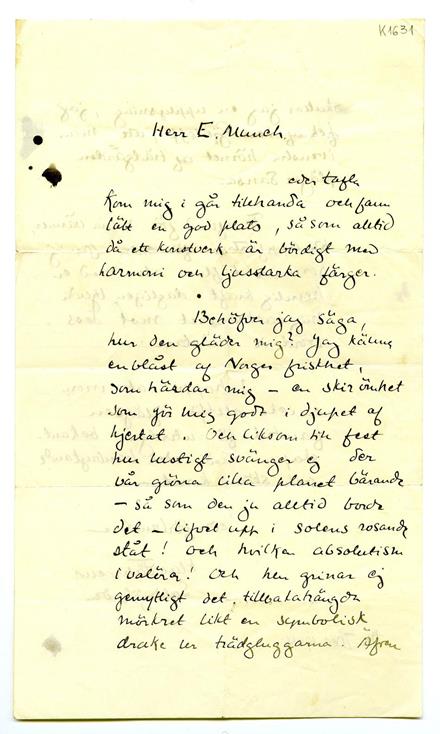 K1631
Herr E. Munch.
eder tafla
Kom mig i går tillhanda och fann
lätt en god plats, så som alltid
då ett konstverk är bördigt med
harmoni och ljusstarka färger.
Behöfver jag säga,
hur den gläder mig? Jag känner
en blåst af Norges friskhet,
som härdar mig – en skir ömhet
som gör mig godt i djupet af
hjertat. Och liksom till fest
hur lustigt svänger ej der
vår gröna lilla planet bärande
– så som den ju alltid borde
det – lifvet upp i solens rosande
ståt! Och hvilken absolutism
i valöra! Och hur grinar ej
gemytligt det tillbakaträngda
mörkret likt en symbolisk
drake ur trädgluggarna. Äfven